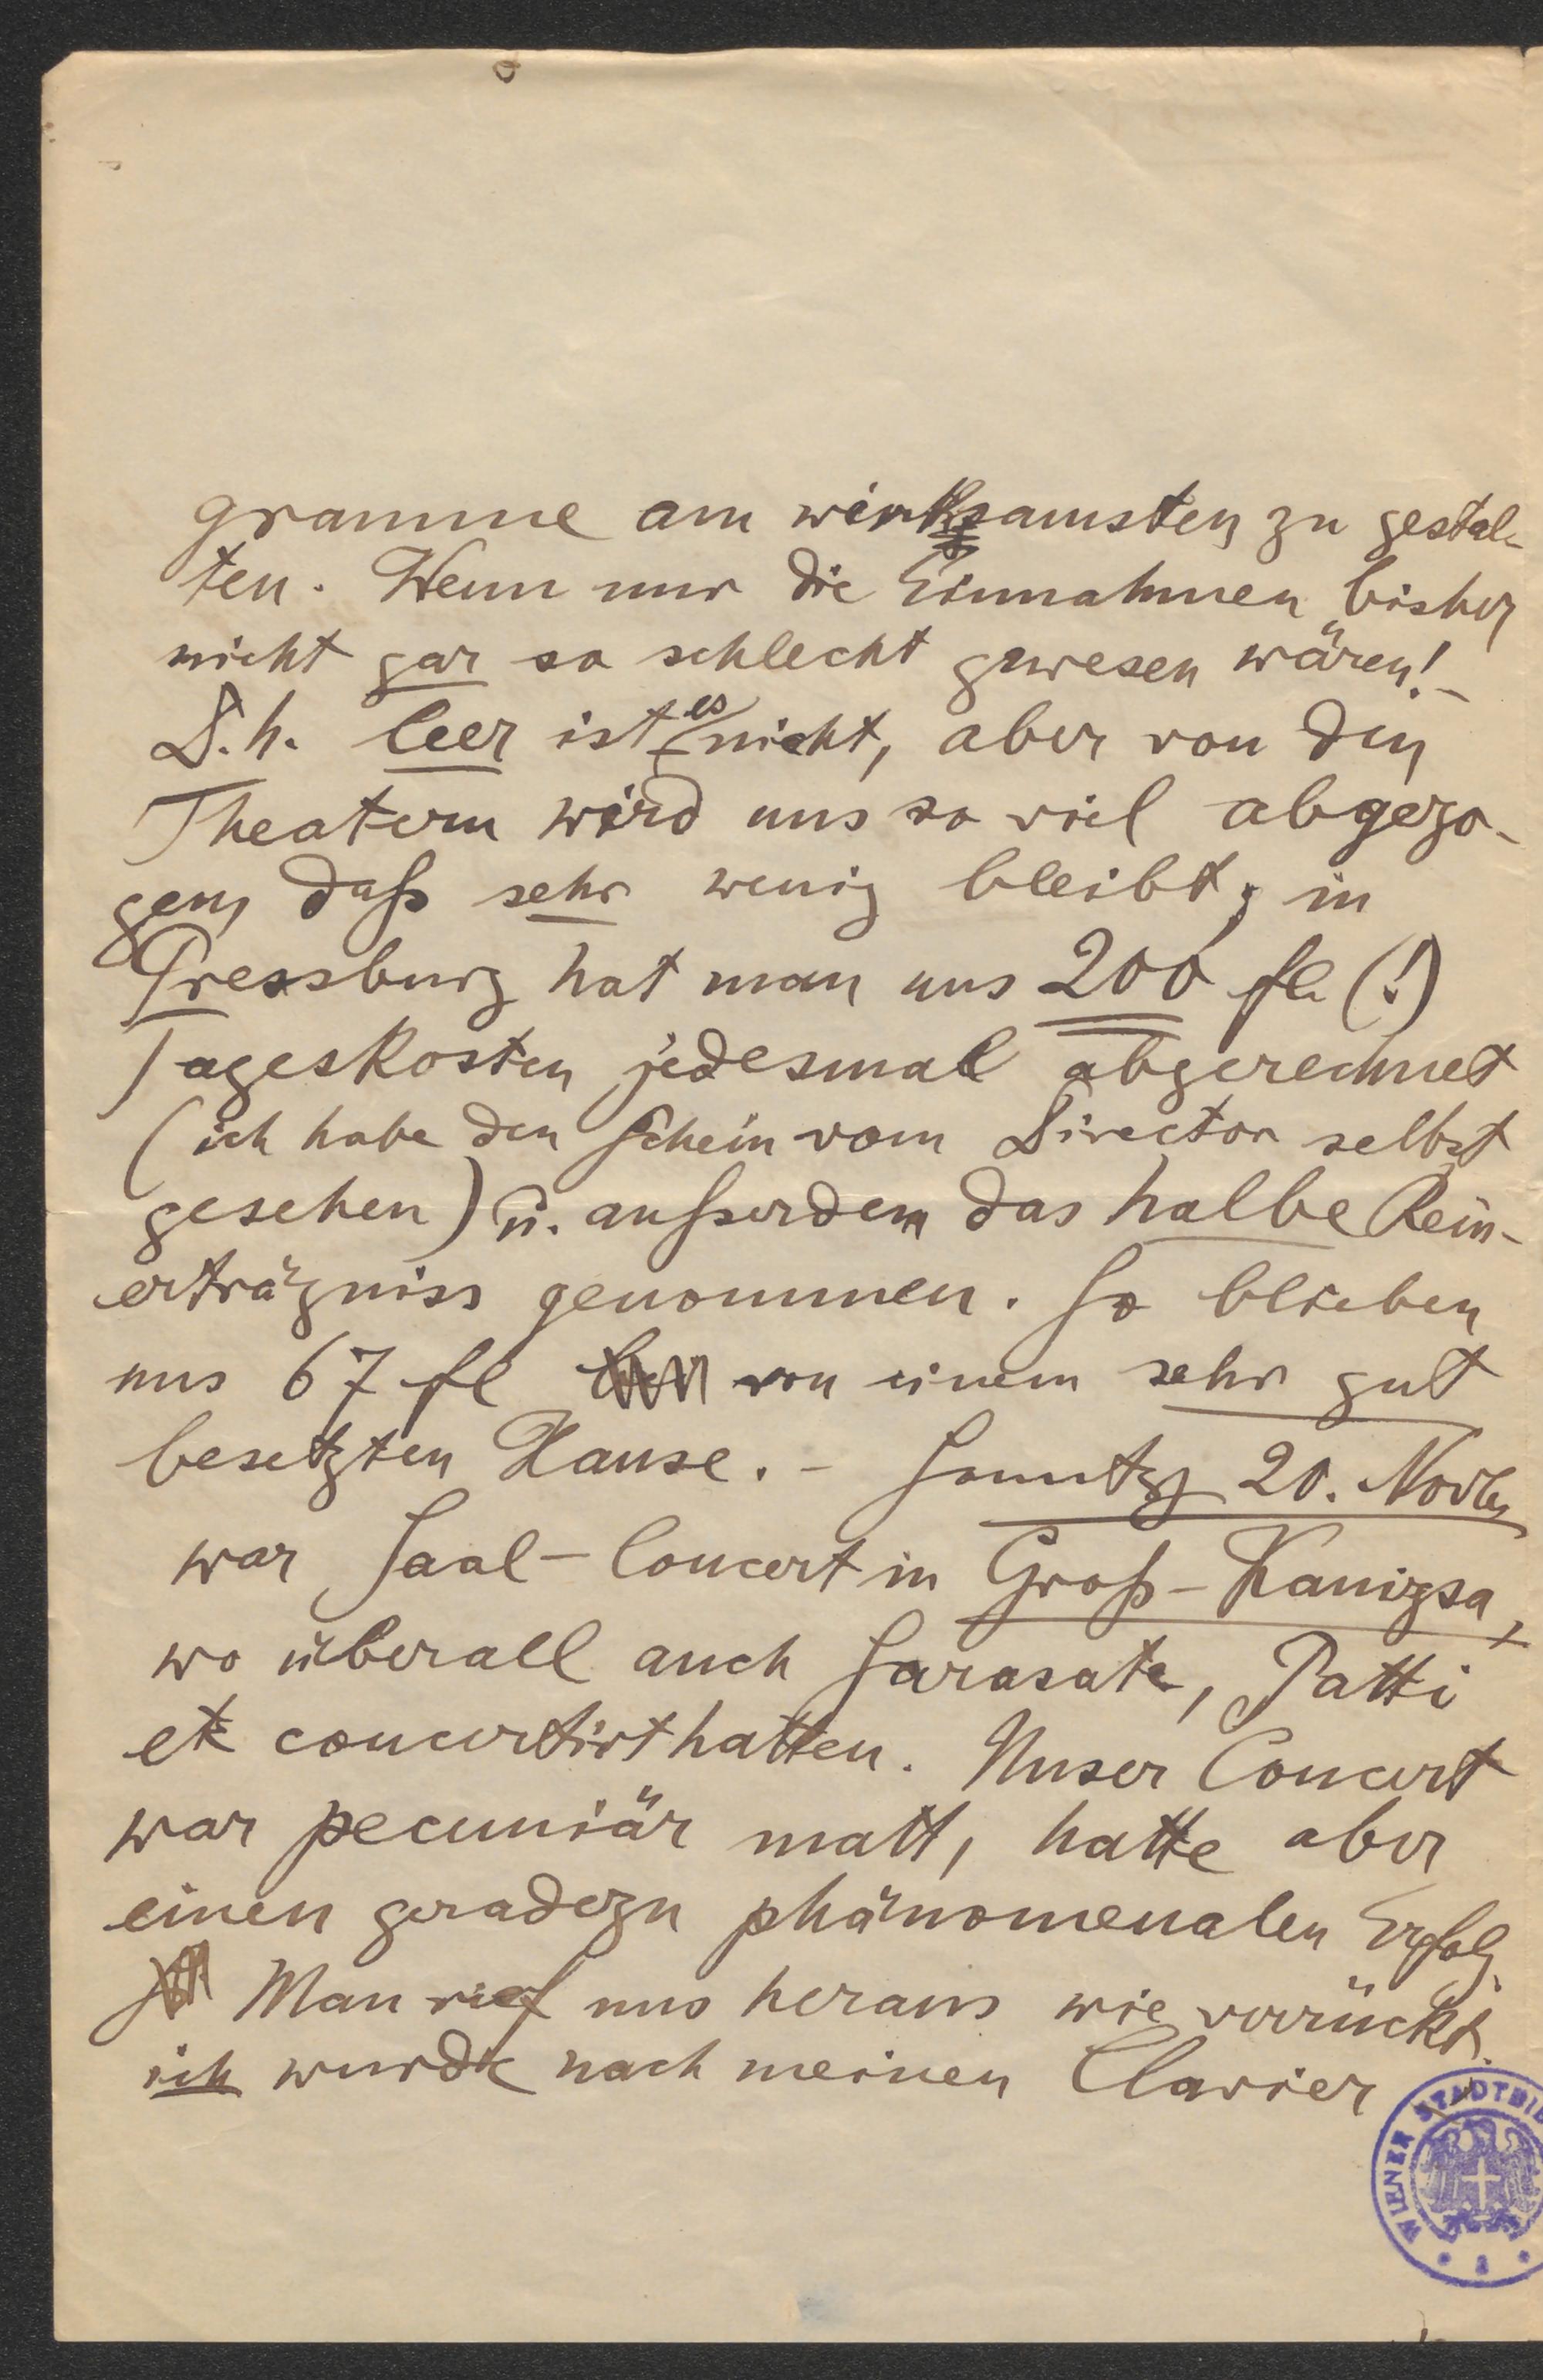 gramme am wirksamsten zu gestal-
ten. Wenn nur die Einnahmen bisher
nicht gar so schlecht gewesen wären! –
D.h. leer ist es nicht, aber von den
Theatern wird uns so viel abgezo-
gen, daß sehr wenig bleibt; in
Pressburg hat man uns 200 fl (!)
Tageskosten jedesmal abgerechnet
(ich habe den Schein vom Director selbst
gesehen) u. außerdem das halbe Rein-
erträgniss genommen. So blieben
uns 67 fl von einem sehr gut
besetzten Hause. – Sonntg 20. Novbr
war Saal-Concert in Groß-Kanizsa,
wo überall auch Sarasate, Patti
etc concertirt hatten. Unser Concert
war pecuniär matt, hatte aber
einen geradezu phänomenalen Erfolg.
Man rief uns heraus wie verrückt.
ich wurde nach meinen Clavier
WIENER STADTBIB